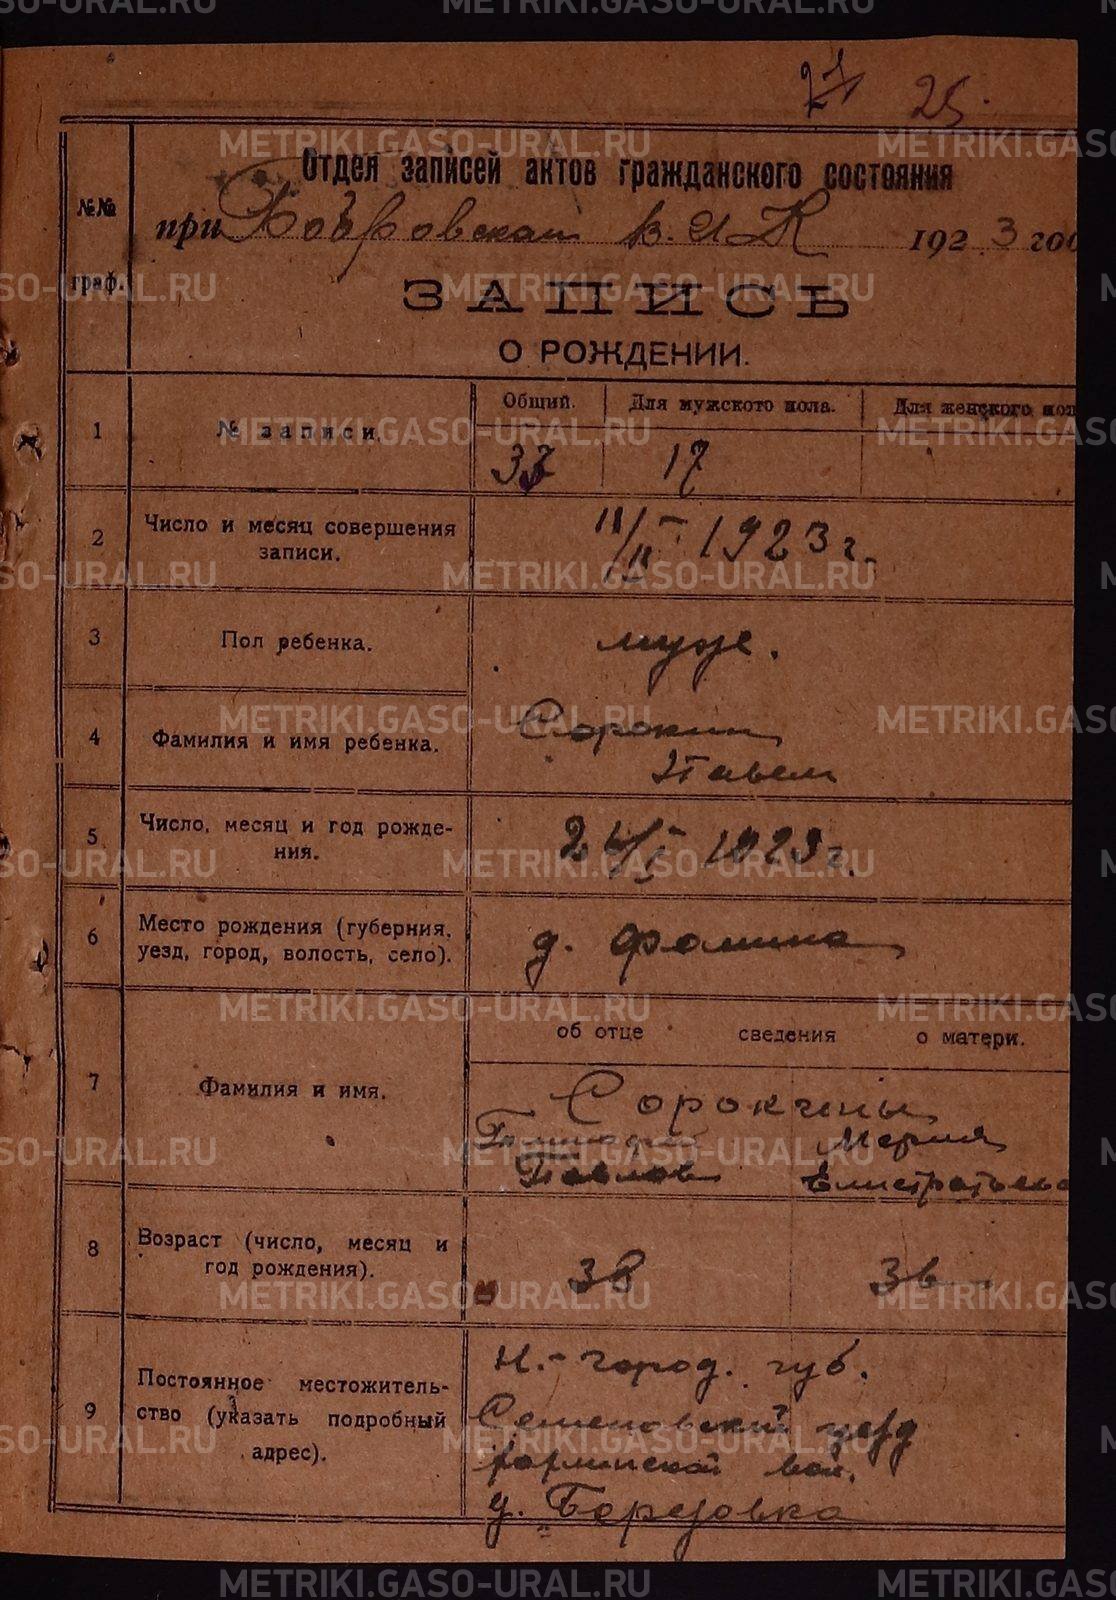 21 25.
Отдел записей актов гражданского состояния
при Бобровском В.И.К 1923 год
№№ граф.
ЗАПИСЬ
О РОЖДЕНИИ.
Общий. Для мужского пола. Для женского пол
1 № записи. 37 17
2 Число и месяц совершения записи. 11/II - 1923 г.
3 Пол ребенка. муж.
4 Фамилия и имя ребенка. Сорокин
Павел
5 Число, месяц и год рожде-
ния. 1923 г.
6 Место рождения (губерния,
уезд, город, волость, село). д. Фомина
об отце сведения о матери.
7 Фамилия и имя. Сорокины
Мария
Павлов Елистратьев
8 Возраст (число, месяц и
год рождения). 38 36
9 Постоянное местожитель-
ство (указать подробный
адрес).
Н.-Город. губ.
Семеновский уезд
вол.
д. Березовка
METRIKI.GASO-URAL.RU